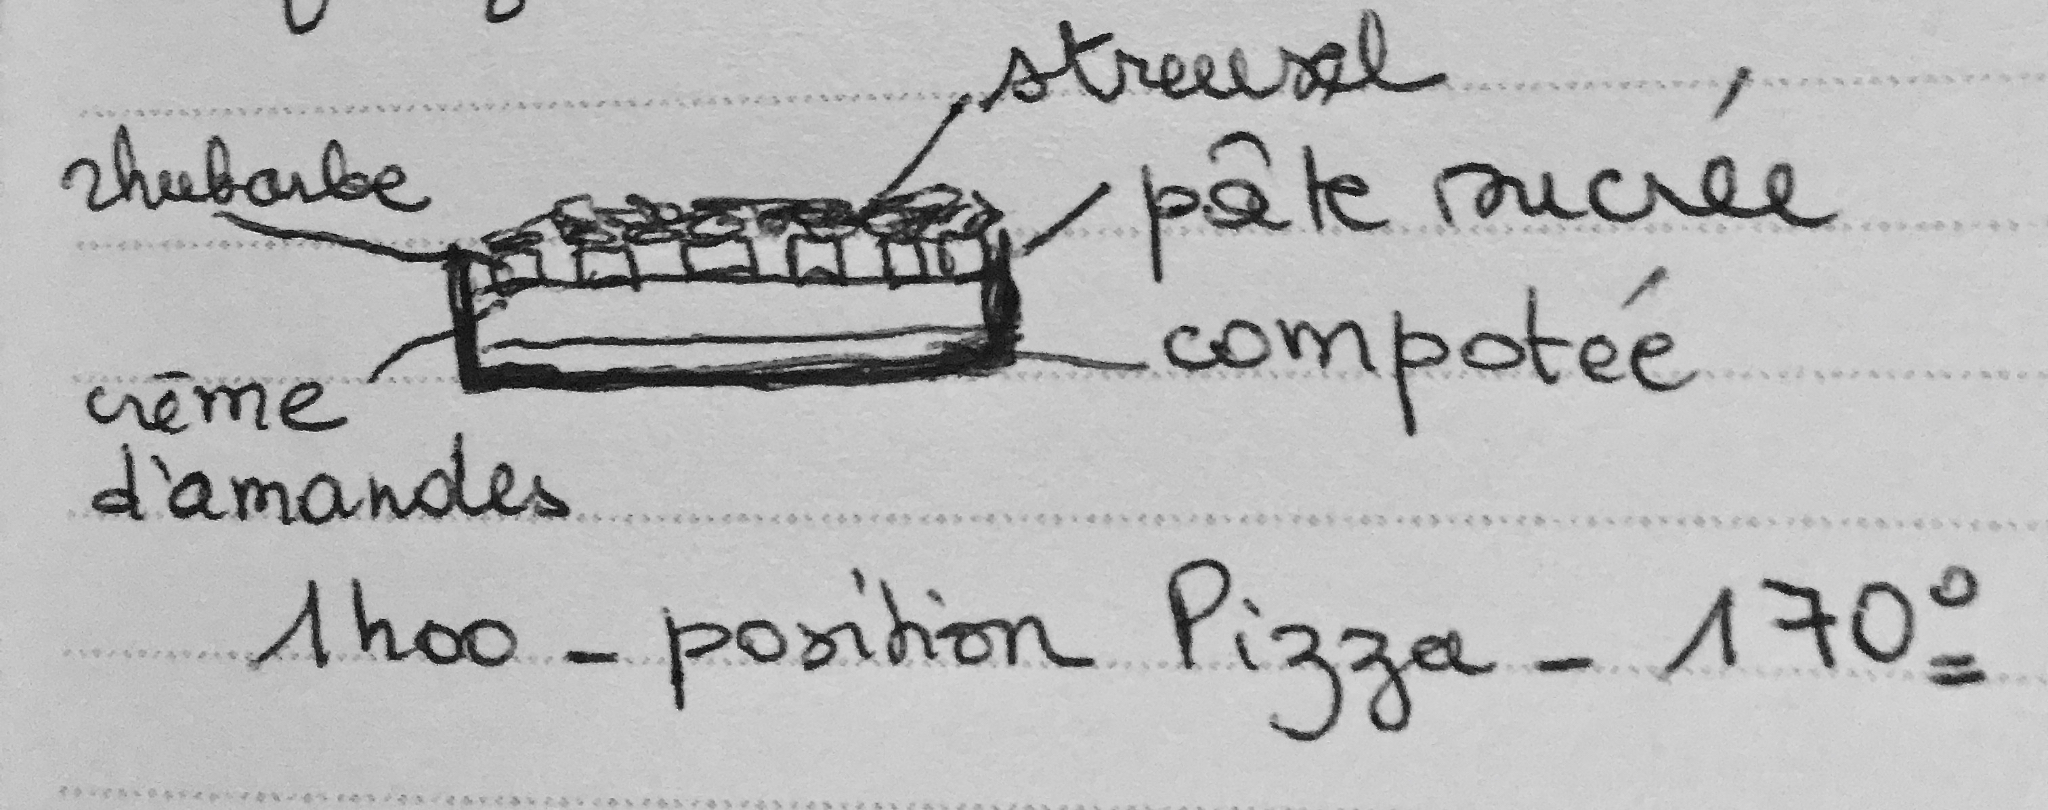 streusel
rhubarbe
pâte sucrée
compotée
crème
d'amandes
1h00 - position Pizza - 170°